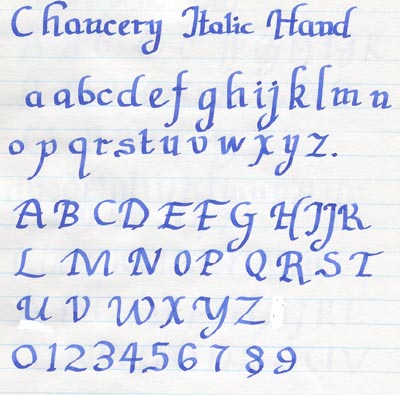 Chancery Italic Hand
a a b c d e f g h i j k l m n
o p q r s t u v w x y z .
A B C D E F G H I J K
L M N O P Q R S T
U V W X Y Z
0 1 2 3 4 5 6 7 8 9